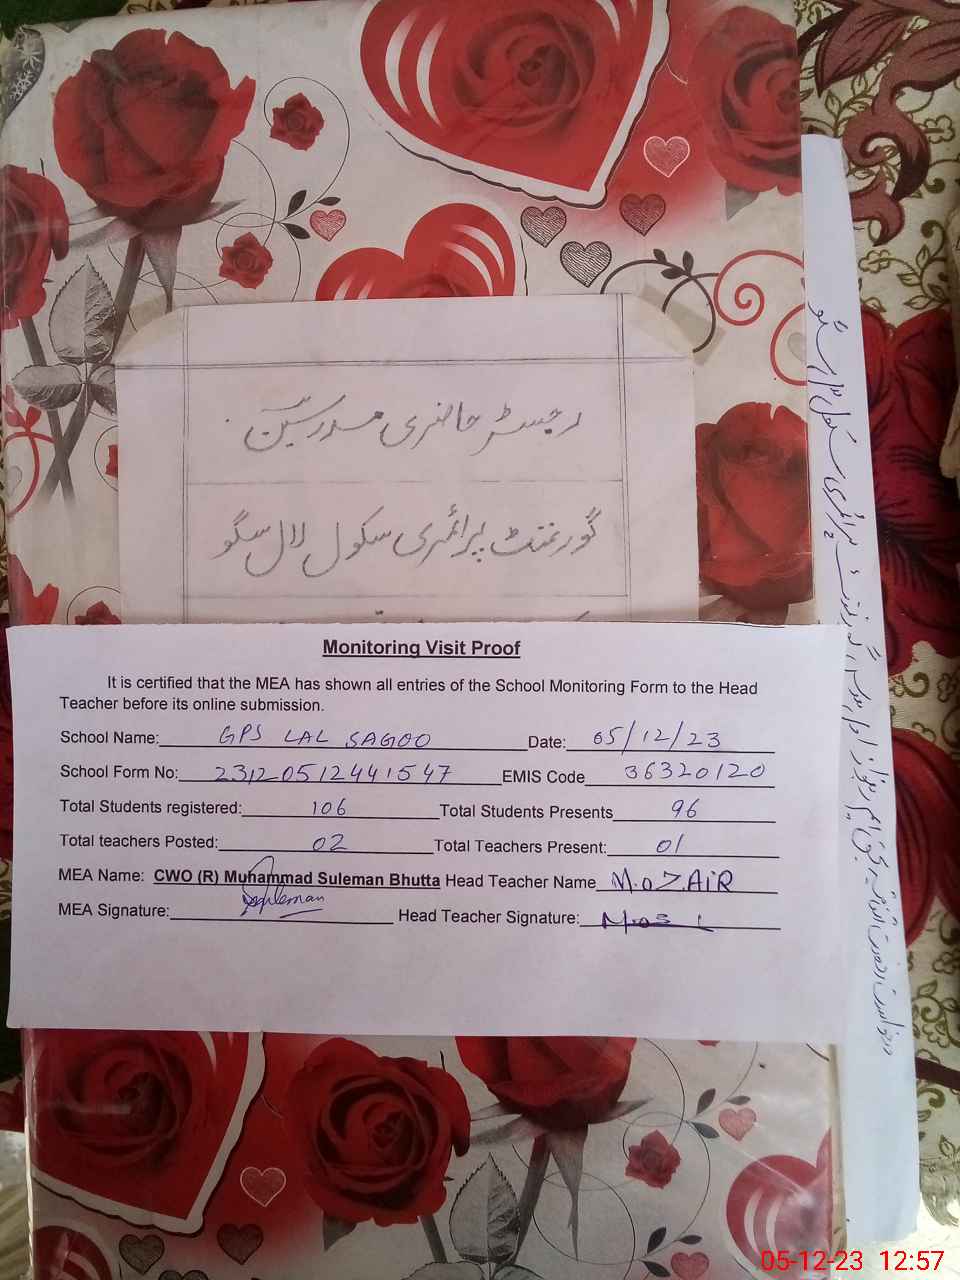 رجسٹر حاضری مدرسین
گورنمنٹ پرائمری سکول لال سگو
Monitoring Visit Proof
It is certified that the MEA has shown all entries of the School Monitoring Form to the Head
Teacher before its online submission.
School Name: GPS LAL SAGOO Date: 05/12/23
School Form No: 231205124441547 EMIS Code 36320120
Total Students registered: 106 Total Students Presents 96
Total teachers Posted: 02 Total Teachers Present: 01
MEA Name: CWO (R) Muhammad Suleman Bhutta Head Teacher Name M.oZAiR
MEA Signature: Suleman Head Teacher Signature:
05-12-23 12:57